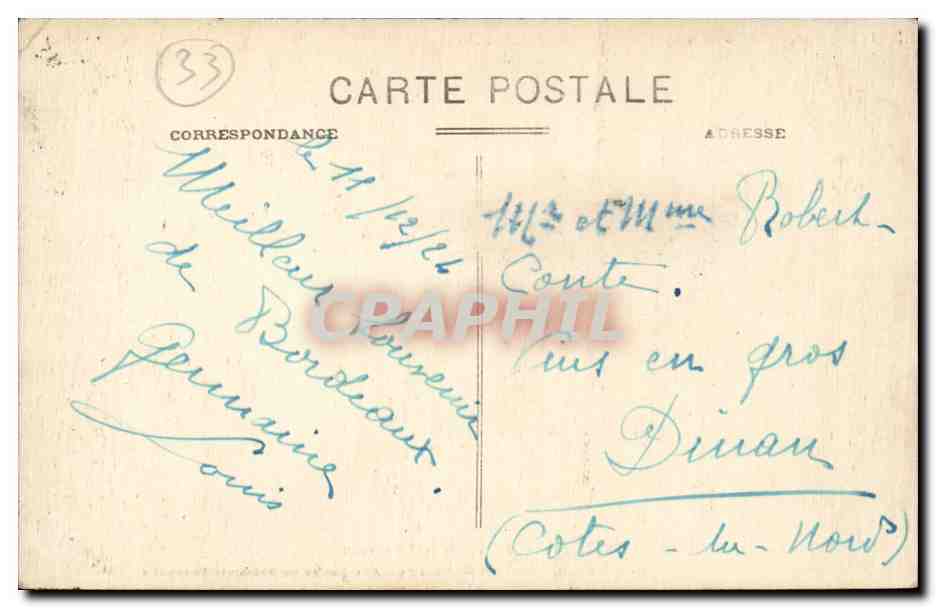 33
CARTE POSTALE
CORRESPONDANCE
ADRESSE
le 11/12/24
Meilleur Souvenir
de Bordeaux.
Germaine
Louis
Mr et Mme Robert
Conte.
Vins en gros
Dinan
(Cotes-du-Nord)
CPAPHIL